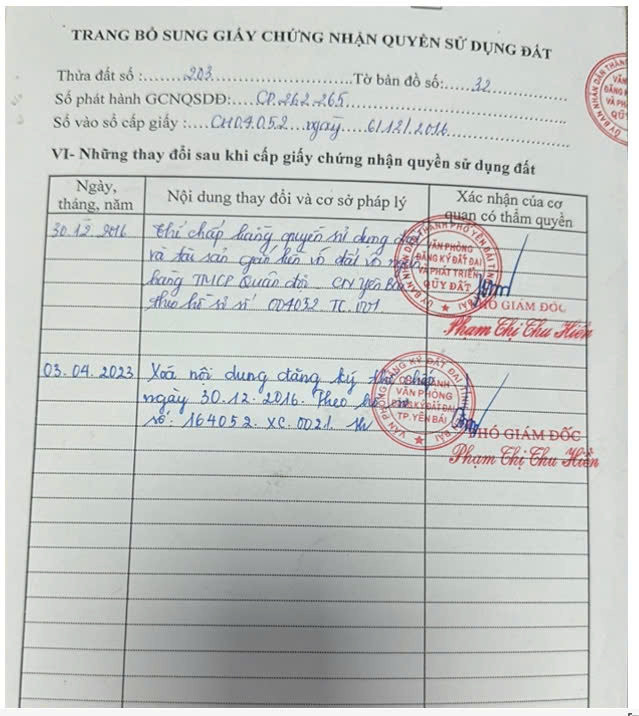 TRANG BỔ SUNG GIẤY CHỨNG NHẬN QUYỀN SỬ DỤNG ĐẤT
Thửa đất số :.....203..........Tờ bản đồ số:.....32.....
Số phát hành GCNQSDĐ:....CP 262 265
Số vào sổ cấp giấy :....CH04052 ngày 6/12/2016
VI- Những thay đổi sau khi cấp giấy chứng nhận quyền sử dụng đất
Ngày, tháng, năm
Nội dung thay đổi và cơ sở pháp lý
Xác nhận của cơ quan có thẩm quyền
30.12.2016
Thế chấp bằng quyền sử dụng đất
và tài sản gắn liền với đất với ngân
hàng TMCP Quân đội CN Yên Bái
theo hồ sơ số 004052.TC.001
ỦY BAN NHÂN DÂN THÀNH PHỐ YÊN BÁI
VĂN PHÒNG
ĐĂNG KÝ ĐẤT ĐAI
VÀ PHÁT TRIỂN
QUỸ ĐẤT
PHÓ GIÁM ĐỐC
Phạm Thị Thu Hiền
03.04.2023
Xoá nội dung đăng ký thế chấp
ngày 30.12.2016. Theo hồ sơ
số: 164052.XC.0021.
VĂN PHÒNG ĐĂNG KÝ ĐẤT ĐAI
CHI NHÁNH
VĂN PHÒNG
ĐĂNG KÝ ĐẤT ĐAI
TP. YÊN BÁI
PHÓ GIÁM ĐỐC
Phạm Thị Thu Hiền